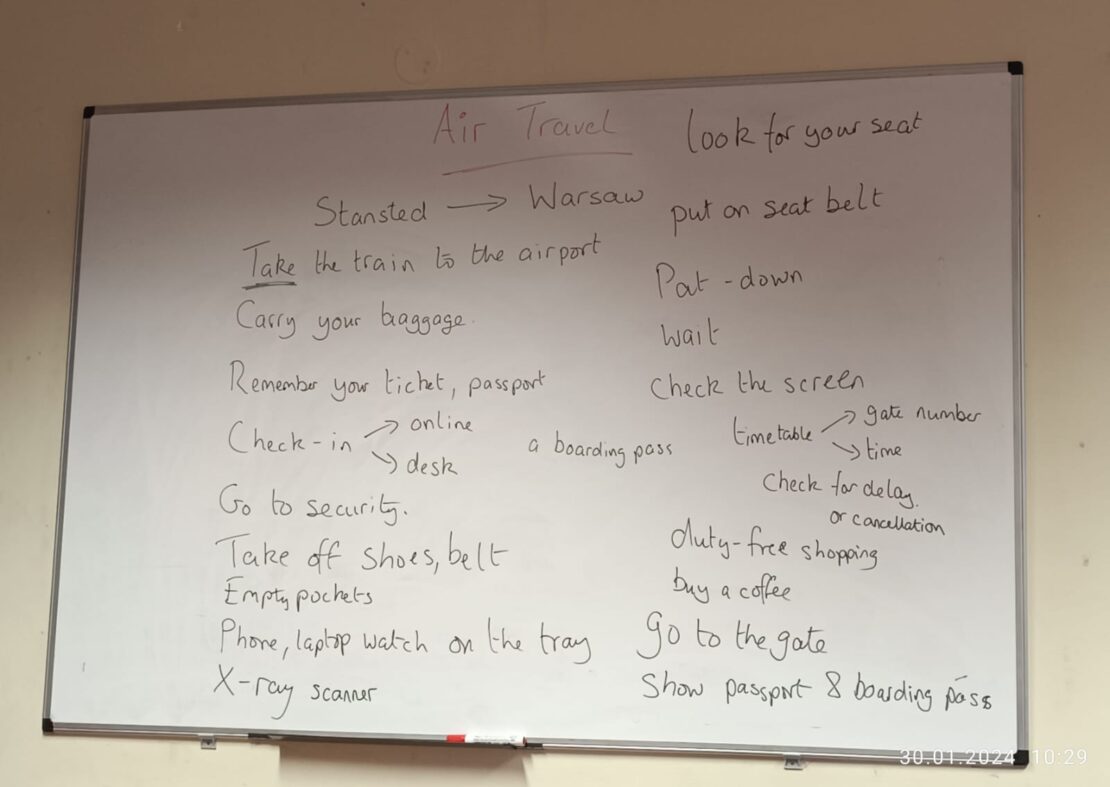 Air Travel
Stansted → Warsaw
Take the train to the airport
Carry your baggage.
Remember your ticket, passport
Check-in → online
→ desk
a boarding pass
Go to security.
Take off shoes, belt
Empty pockets
Phone, laptop watch on the tray
X-ray scanner
look for your seat
put on seat belt
Pat-down
wait
check the screen
timetable → gate number
→ time
check for delay
or cancellation
duty-free shopping
buy a coffee
go to the gate
Show passport & boarding pass
30.01.2024 10:29